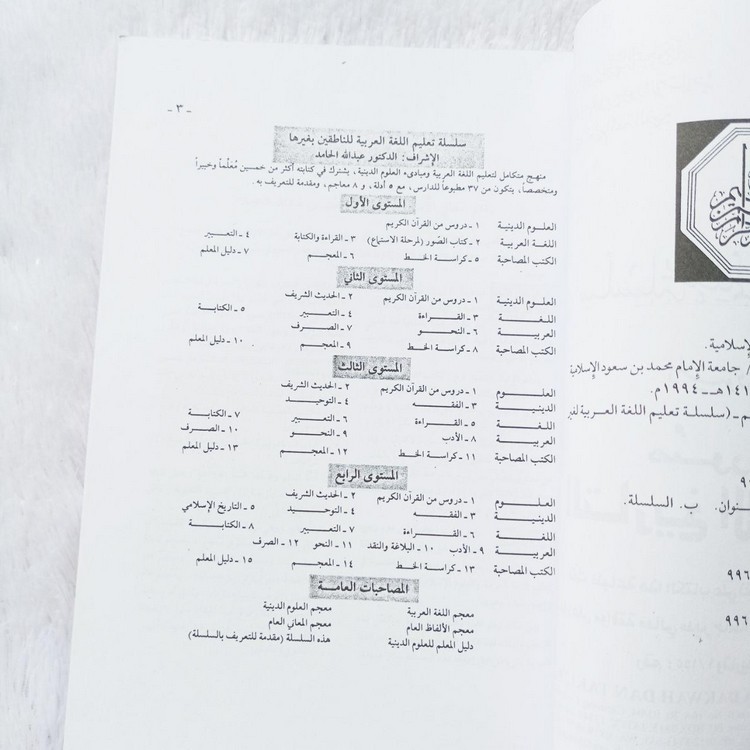 - ٣ -
سلسلة تعليم اللغة العربية للناطقين بغيرها
الإشراف: الدكتور عبدالله الحامد
منهج متكامل لتعليم اللغة العربية ومبادىء العلوم الدينية، يشترك في كتابته أكثر من خمسين مُعَلِّماً وخبيراً
ومتخصصاً، يتكون من ٣٧ مطبوعاً للدارس، مع ٥ أدلة، و ٨ معاجم، ومقدمة للتعريف به.
المستوى الأول
العلـوم الدينية ١ - دروس من القرآن الكريم
اللغة العربية ٢ - كتاب الصّور (لمرحلة الاستماع) ٣ - القراءة والكتابة ٤ - التعبير
الكتب المصاحبة ٥ - كراسة الخط ٦ - المعجم ٧ - دليل المعلم
المستوى الثاني
العلـوم الدينية ١ - دروس من القرآن الكريم ٢ - الحديث الشريف
اللغة ٣ - القراءة ٤ - التعبير ٥ - الكتابة
العربية ٦ - النحو ٧ - الصرف
الكتب المصاحبة ٨ - كراسة الخط ٩ - المعجم ١٠ - دليل المعلم
المستوى الثالث
العلوم ١ - دروس من القرآن الكريم ٢ - الحديث الشريف
الدينية ٣ - الفقه ٤ - التوحيد
اللغة ٥ - القراءة ٦ - التعبير ٧ - الكتابة
العربية ٨ - الأدب ٩ - النحو ١٠ - الصرف
الكتب المصاحبة ١١ - كراسة الخط ١٢ - المعجم ١٣ - دليل المعلم
المستوى الرابع
العلوم ١ - دروس من القرآن الكريم ٢ - الحديث الشريف
الدينية ٣ - الفقه ٤ - التوحيد ٥ - التاريخ الإسلامي
اللغة ٦ - القراءة ٧ - التعبير ٨ - الكتابة
العربية ٩ - الأدب ١٠ - البلاغة والنقد ١١ - النحو ١٢ - الصرف
الكتب المصاحبة ١٣ - كراسة الخط ١٤ - المعجم ١٥ - دليل المعلم
المصاحبات العامة
معجم اللغة العربية معجم العلوم الدينية
معجم الألفاظ العام معجم المعاني العام
دليل المعلم للعلوم الدينية هذه السلسلة (مقدمة للتعريف بالسلسلة)
/ جامعة الإمام محمد بن سعود الإسلامية
هـ - ١٩٩٤م.
(سلسلة تعليم اللغة العربية
ب. السلسلة.
٩٩٦
٩٩٦